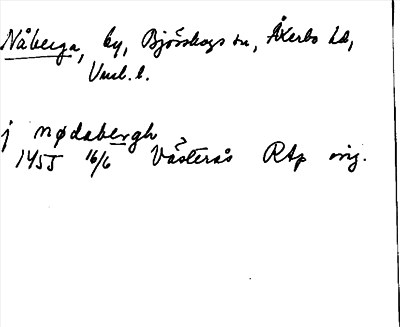 Nåberga, by, Björskogs sn, Åkerbo hd,
Vml. l.
j nødabergh
1455 16/6 Västerås RAp orig.